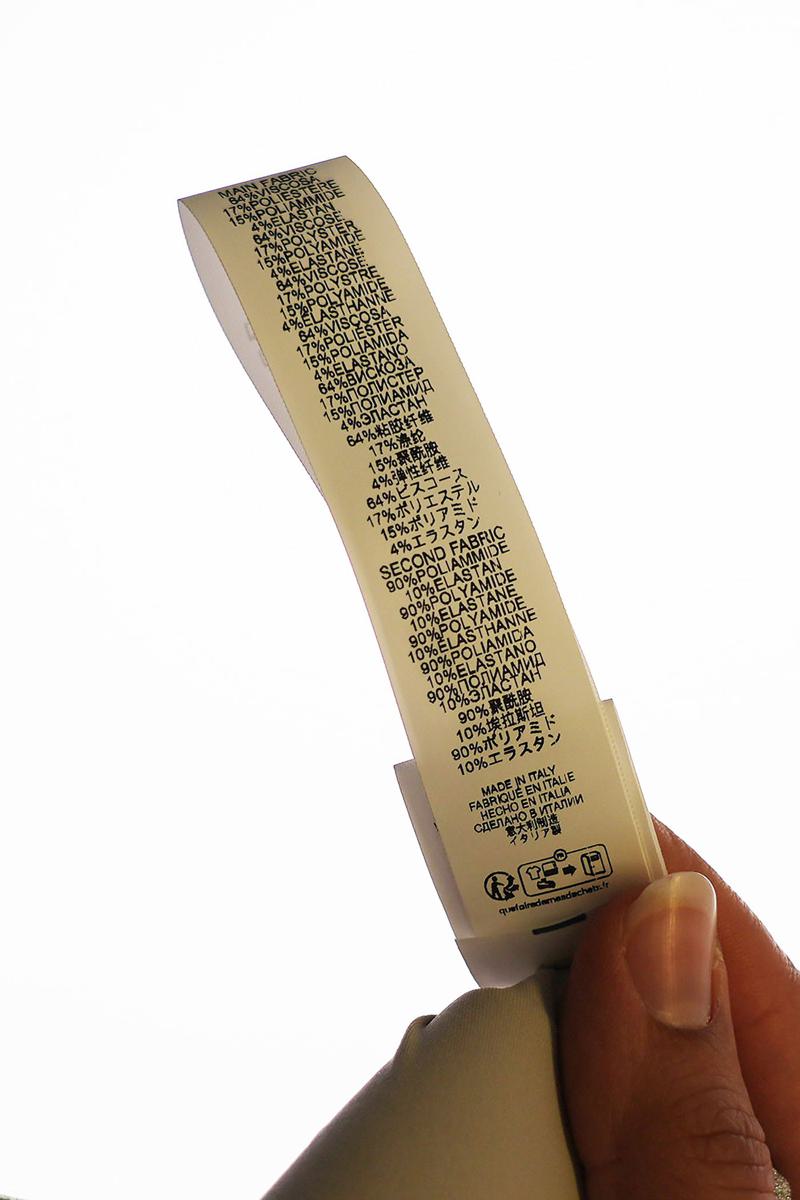 MAIN FABRIC
64%VISCOSA
17%POLIESTERE
15%POLIAMMIDE
4%ELASTAN
64%VISCOSE
17%POLYSTER
15%POLYAMIDE
4%ELASTANE
64%VISCOSE
17%POLYSTRE
15%POLYAMIDE
4%ELASTHANNE
64%VISCOSA
17%POLIÉSTER
15%POLIAMIDA
4%ELASTANO
64%ВИСКОЗА
17%ПОЛИСТЕР
15%ПОЛИАМИД
4%ЭЛАСТАН
64%粘胶纤维
17%涤纶
15%聚酰胺
4%弹性纤维
64%ビスコース
17%ポリエステル
15%ポリアミド
4%エラスタン
SECOND FABRIC
90%POLIAMMIDE
10%ELASTAN
90%POLYAMIDE
10%ELASTANE
90%POLYAMIDE
10%ELASTHANNE
90%POLIAMIDA
10%ELASTANO
90%ПОЛИАМИД
10%ЭЛАСТАН
90%聚酰胺
10%埃拉斯坦
90%ポリアミド
10%エラスタン
MADE IN ITALY
FABRIQUÉ EN ITALIE
HECHO EN ITALIA
СДЕЛАНО В ИТАЛИИ
意大利制造
イタリア製
FR
quefairedemesdechets.fr